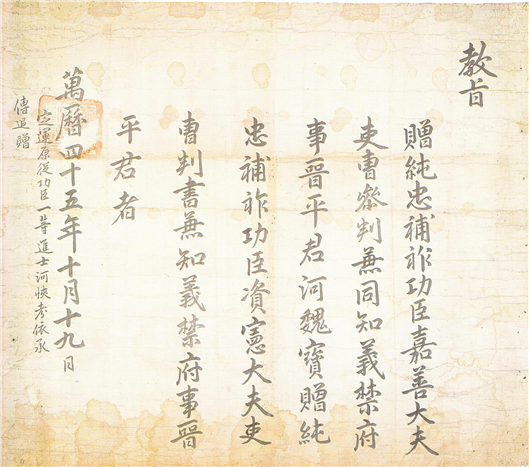 教旨
贈純忠補祚功臣嘉善大夫
吏曹叅判兼同知義禁府
事晉平君河魏寶贈純
忠補祚功臣資憲大夫吏
曹判書兼知義禁府事晉
平君者
萬曆四十五年十月十九日
定運原從功臣一等進士河悏考依承
傳追贈